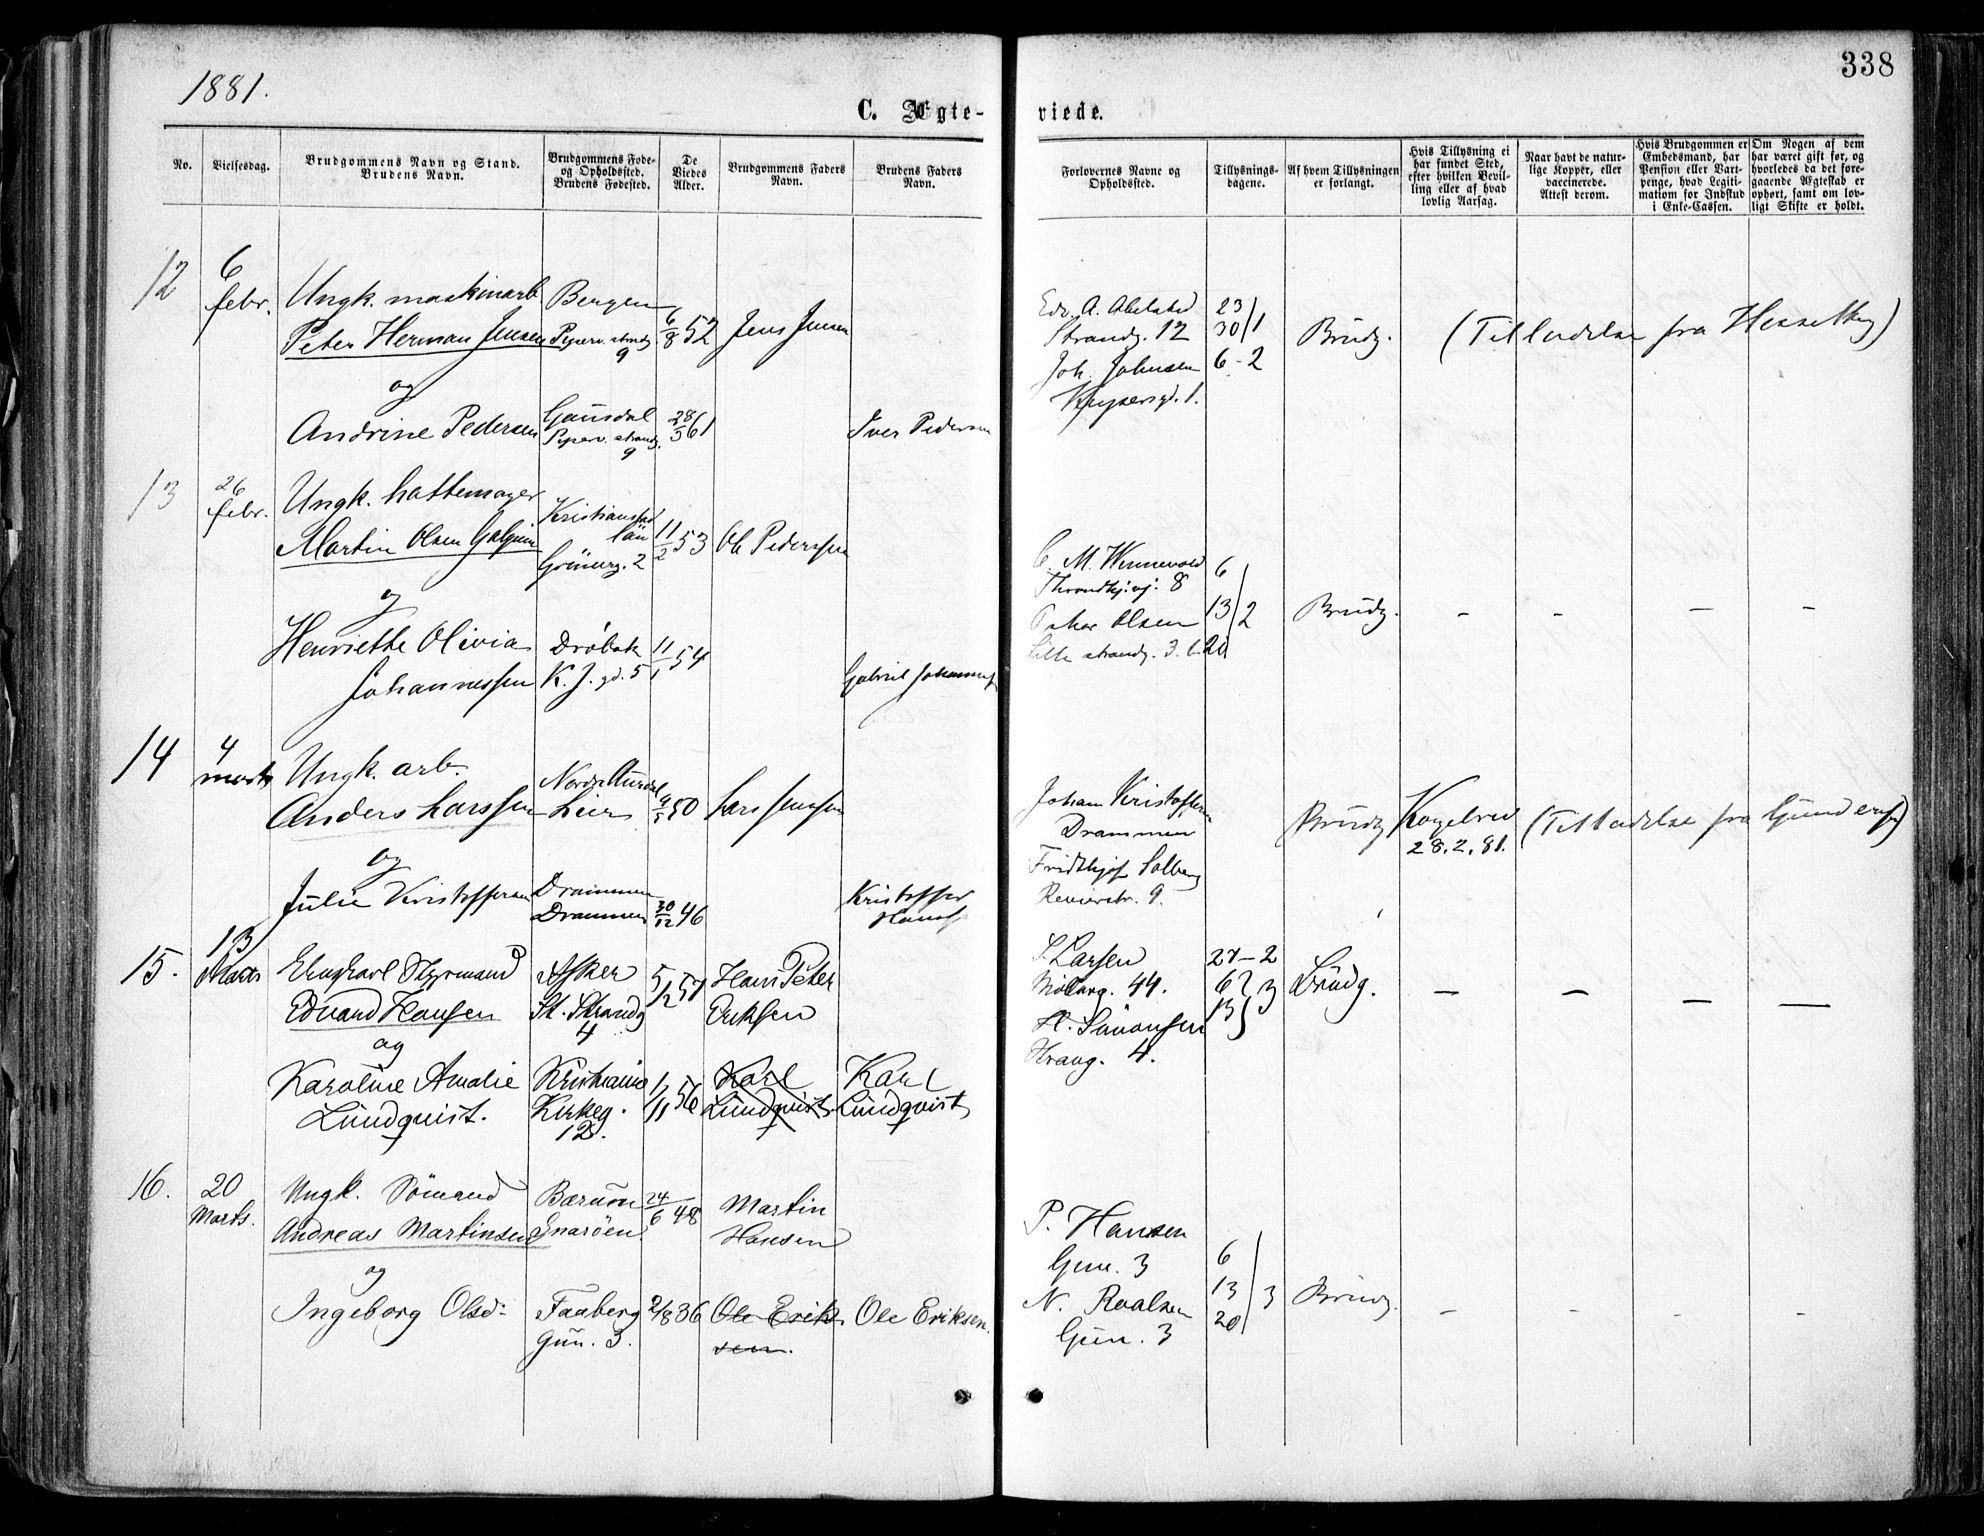 1881.
338
C. Ægte-
viede.
No.
Vielsesdag.
Brudgommens Navn og Stand.
Brudens Navn.
Brudgommens Føde-
og Opholdssted.
Brudens Fødested.
De
Viedes
Alder.
Brudgommens Faders
Navn.
Brudens Faders
Navn.
Forlovernes Navne og
Opholdssted.
Tillysnings-
dagene.
Af hvem Tillysningen
er forlangt.
Hvis Tillysning ei
har fundet Sted,
efter hvilken Bevil-
ling eller af hvad
lovlig Aarsag.
Naar havt de natur-
lige Kopper, eller
vaccinerede.
Attest derom.
Hvis Brudgommen er
Embedsmand, har
Pension eller Vart-
penge, hvad Legiti-
mation for Indskud
i Enke-Cassen.
Om Nogen af dem
har været gift før, og
hvorledes da det fore-
gaaende Ægteskab er
ophørt, samt om lov-
ligt Skifte er holdt.
12
6
febr.
Ungk. maskinarb
Peter Herman Jensen
Bergen
Piperv. strandg
9
6/8 52
Jens Jensen
og
Andrine Pedersen
Gausdal
Piperv. strandg.
9
28/3 61
Iver Pedersen
Edv. A. Abelsted
Strandg. 12
Joh. Johnsen
Keysersgd. 1.
23
30/1
6-2
Brudg.
(Tilladelse fra Hesselberg)
13
26
febr.
Ungk. hattemager
Martin Olsen
Kristianstad
län
Grönerg. 2
11/2 53
Ole Pederssen
og
Henriette Olivia
Johannessen
Dröbak
K. J. gd. 5
11/1 54
Gabriel Johannes
C. M. Winnevold
Throndhj.vj. 8
Olsen
Lille strandg. 3.
6
13/2
20
Brudg.
14
4
marts
Ungk. arb.
Anders Larssen
Nordre Aurdal
Lier
50
Lars Jenssen
og
Julie Kristoffersen
Drammen
Drammen
30/12 46
Kristoffer
Hans
Johan Kristoffersen
Drammen
Fridthjof Solberg
Revierstr. 9.
Brudg
Kongebrev
28.2.81.
(Tilladelse fra Gundersen)
15.
13
Marts
Ungkarl Styrmand
Edvard Hansen
Asker
St. Strandg
4
5/12 57
Hans Peter
Eriksen
og
Karoline Amalie
Lundquist.
Kristiania
Kirkeg.
12.
1/11 56
Karl
Lundquist
Karl
Lundquist
S. Larsen
Möllerg. 44.
H. Simonsen
Strang. 4.
27-2
6
13
3
Brudg.
16.
20
Marts.
Ungk. Sömand
Andreas Martinsen
Bærum
Snaröen
24/6 48
Martin
Hansen
og
Ingeborg Olsd:
Faaberg
Grün. 3.
2/8 36
Ole Erik
sen.
Ole Eriksen.
P. Hansen
Grün. 3
N. Roalsen
Grün. 3
6
13/3
20
Brudg.